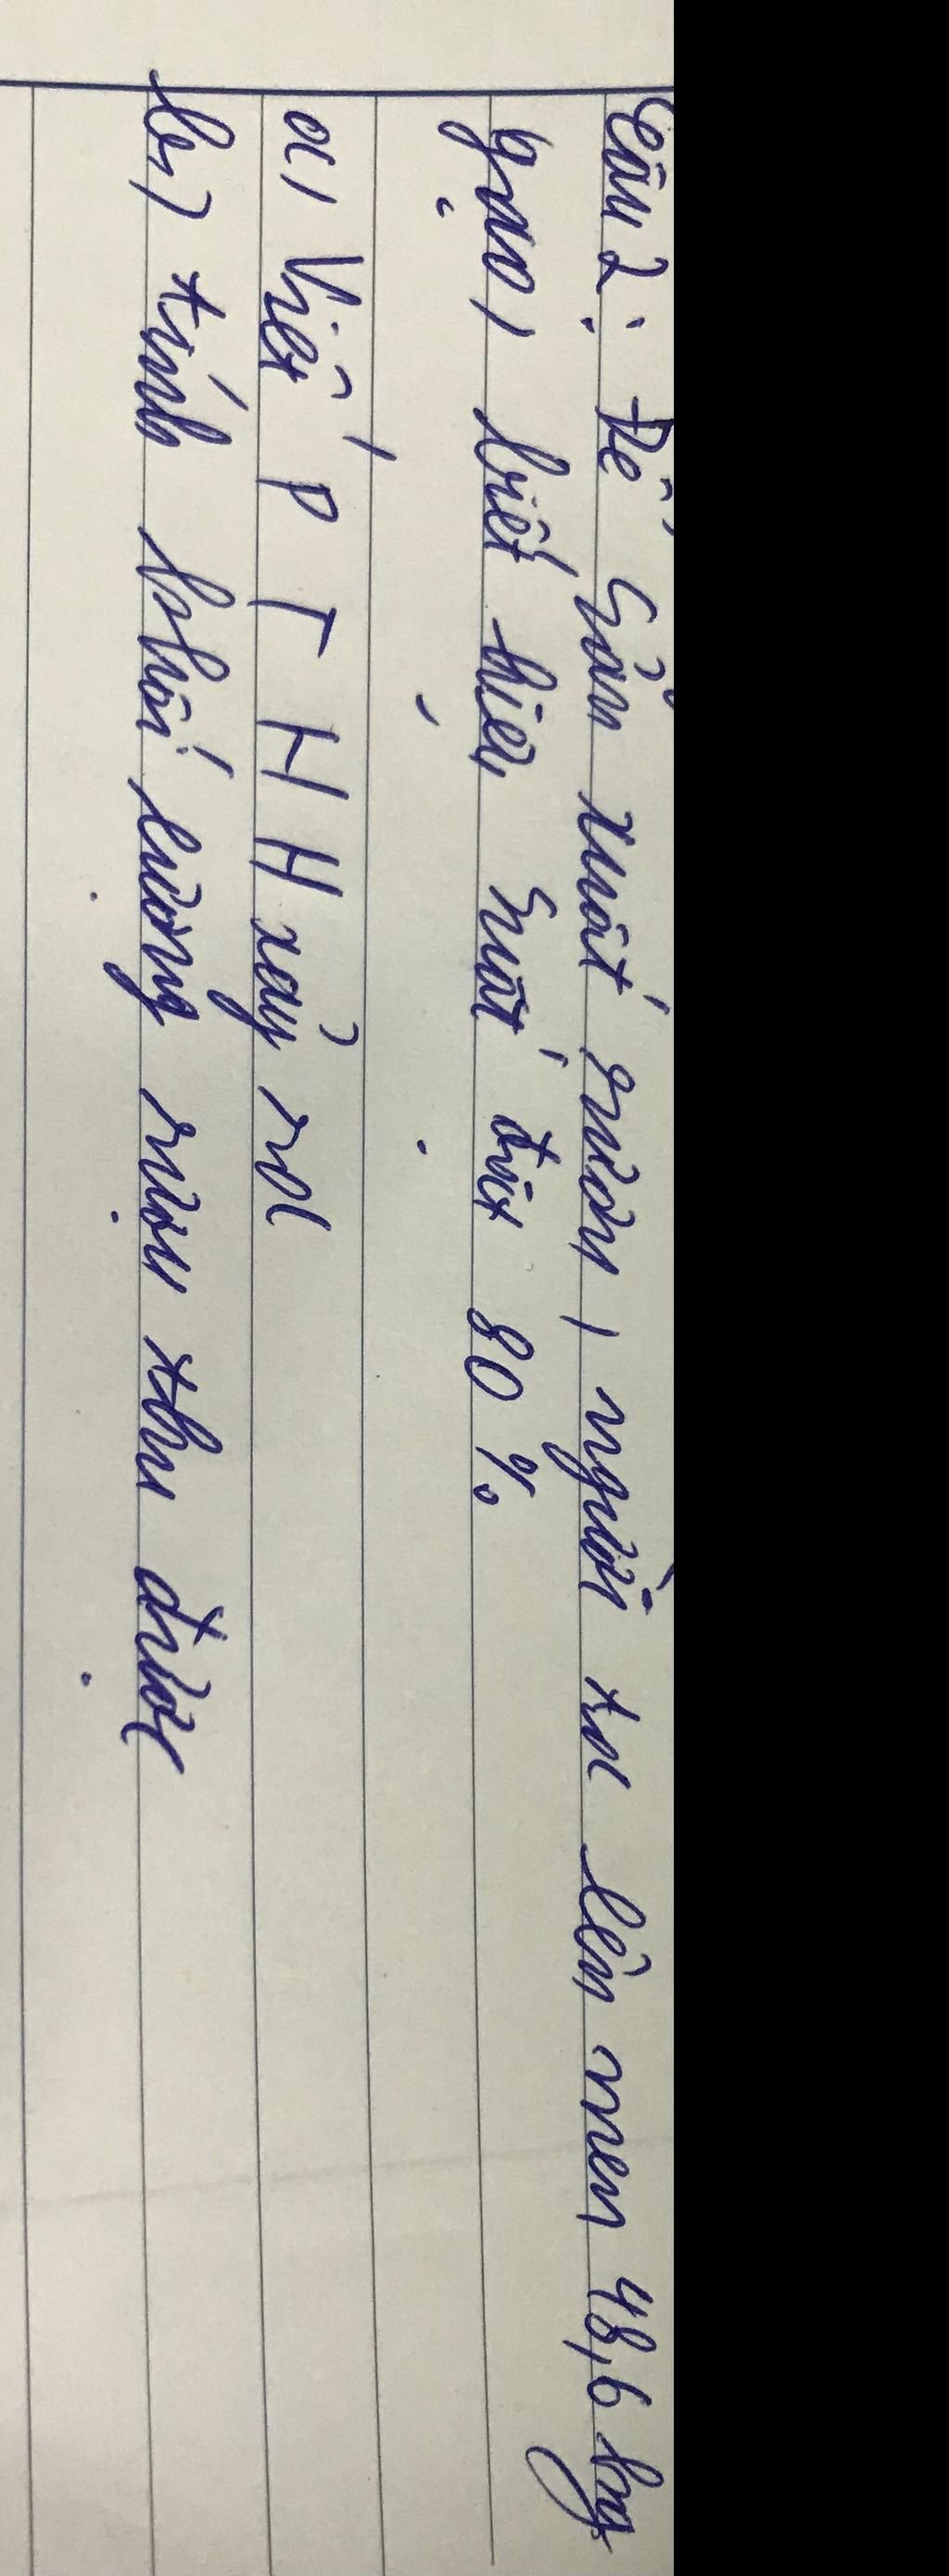 Câu 2: Để sản xuất rượu, người ta lên men 48,6 kg
gạo, biết hiệu suất đạt 80%
a, Viết PTHH xảy ra
b) tính khối lượng rượu thu được